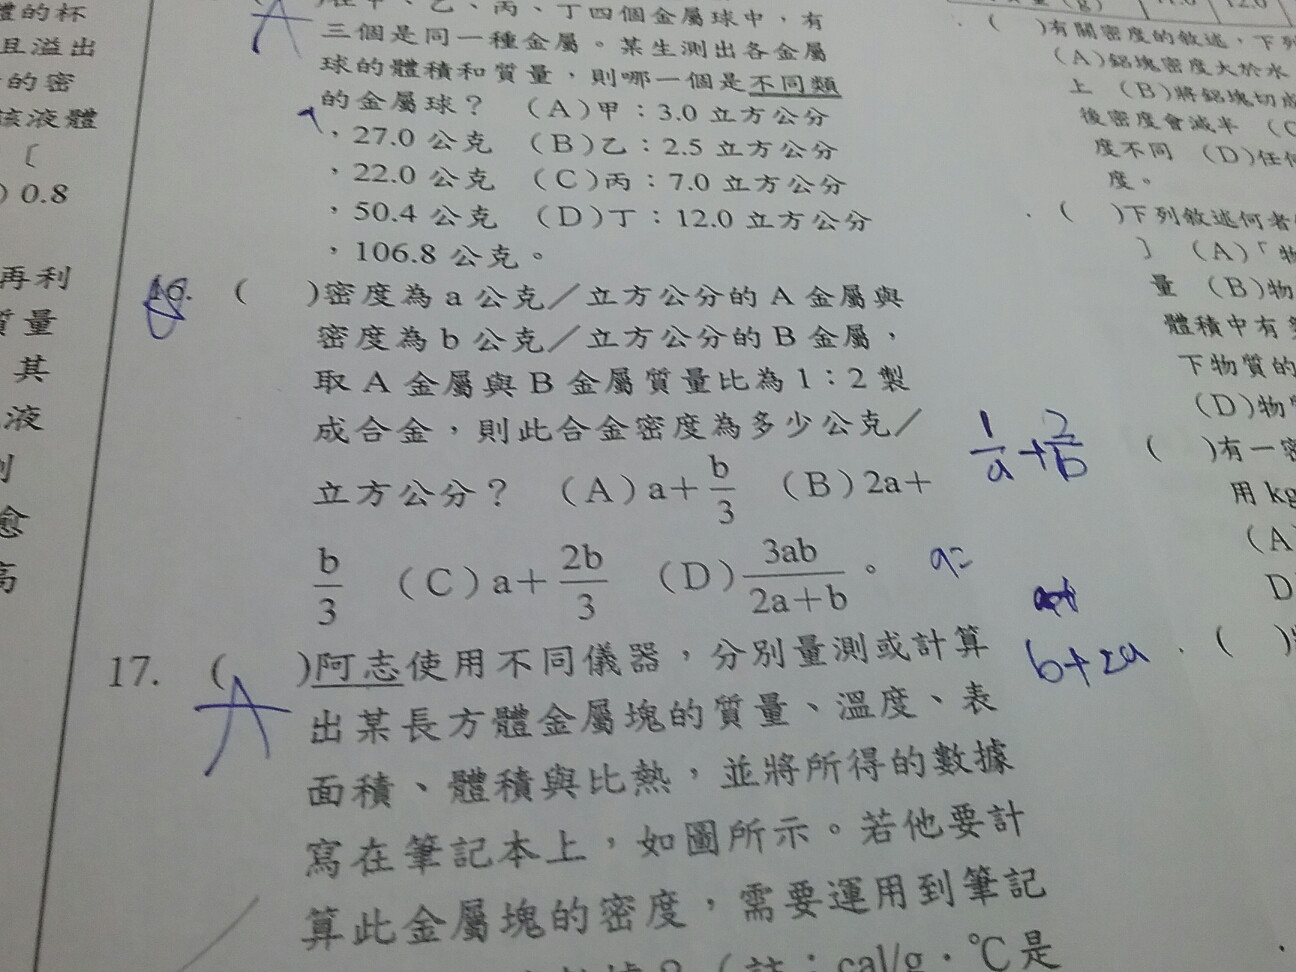 體的杯
且溢出
的密
該液體
〔
) 0.8
再利
質量
其
液
愈
高
A
乙、丙、丁四個金屬球中，有
三個是同一種金屬。某生測出各金屬
球的體積和質量，則哪一個是不同類
的金屬球？ (A)甲：3.0 立方公分
，27.0 公克 (B)乙：2.5 立方公分
，22.0 公克 (C)丙：7.0 立方公分
，50.4 公克 (D)丁：12.0 立方公分
，106.8 公克。
16. ( )密度為 a 公克／立方公分的 A 金屬與
密度為 b 公克／立方公分的 B 金屬，
取 A 金屬與 B 金屬質量比為 1：2 製
成合金，則此合金密度為多少公克／
立方公分？ (A) a+b/3 (B) 2a+
b/3 (C) a+2b/3 (D) 3ab/2a+b。
1/a+2/b
a=
b+2a
17. ( )阿志使用不同儀器，分別量測或計算
A
出某長方體金屬塊的質量、溫度、表
面積、體積與比熱，並將所得的數據
寫在筆記本上，如圖所示。若他要計
算此金屬塊的密度，需要運用到筆記
(註：cal/g．℃是
(g) 11.0 12.0
( )有關密度的敘述，下列
(A)鋁塊密度大於水
上 (B)將鋁塊切成
後密度會減半 (C
度不同 (D)任何
度。
( )下列敘述何者
〕 (A)「物
量 (B)物
體積中有
下物質的
(D)物
( )有一密
用 kg
(A
D
( )